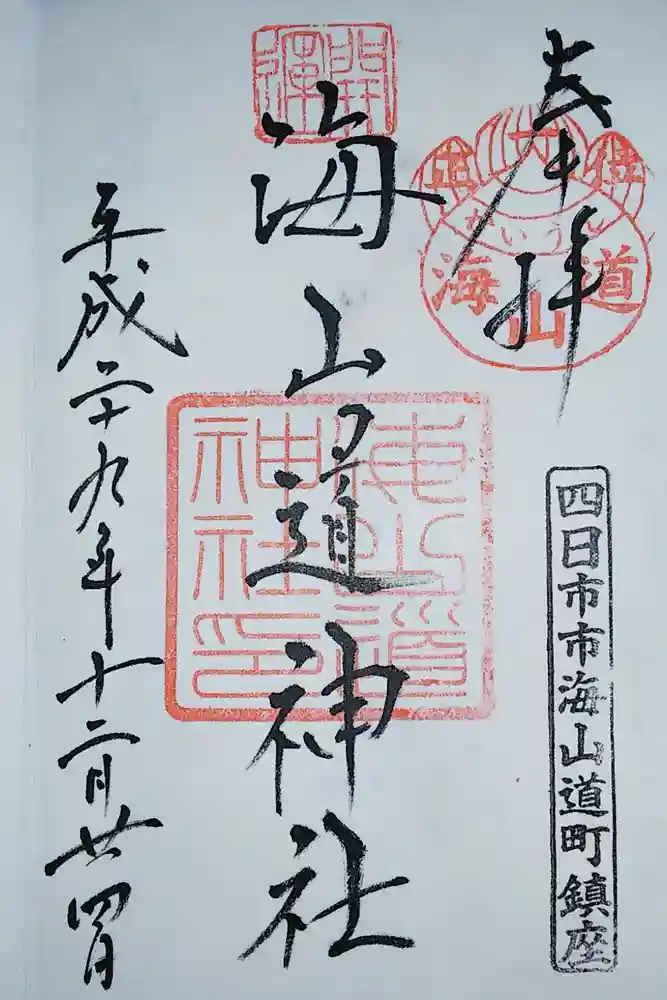 奉拝
かいうん
海山道
四日市市海山道町鎮座
開運
海山道神社
海山道神社印
平成二十九年十二月廿四日